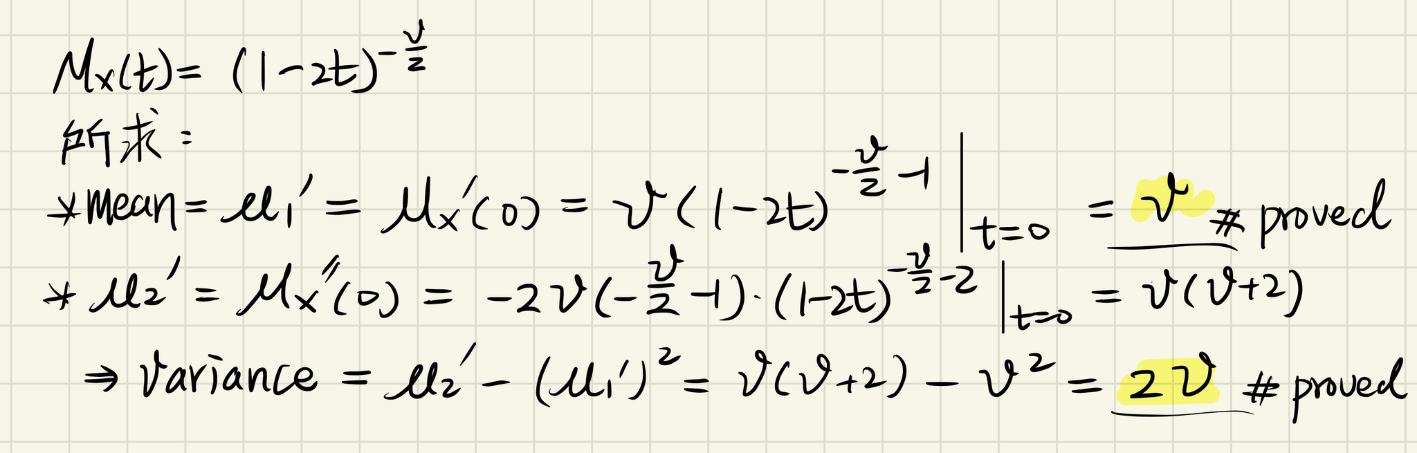 M_X(t) = (1-2t)^{-ν/2}
所求：
*mean = μ₁' = M_X'(0) = ν(1-2t)^{-ν/2 -1} |_{t=0} = ν # proved
* μ₂' = M_X''(0) = -2ν(-ν/2 -1)·(1-2t)^{-ν/2 -2} |_{t=0} = ν(ν+2)
⇒ variance = μ₂' - (μ₁')² = ν(ν+2) - ν² = 2ν # proved